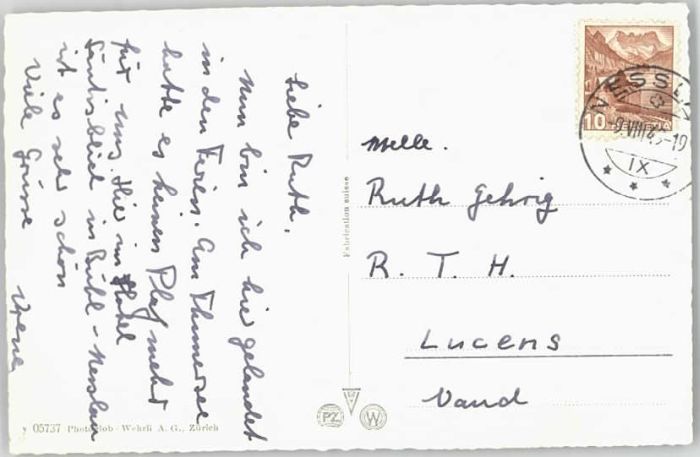 Liebe Ruth,
Nun bin ich hier gelandet
in den Ferien. Am Thunersee
hatte es keinen Platz mehr
für uns. Hier im Hotel
Säntisblick in Bühl-Nesslau
ist es sehr schön
Viele Grüsse
Vreni
Fabrication suisse
NESSL
9.VIII.4 -19
IX
10 HELVETIA
Melle.
Ruth Gehrig
R. T. H.
Lucens
Vaud
PZ W
05737 Photoglob-Wehrli A. G., Zürich